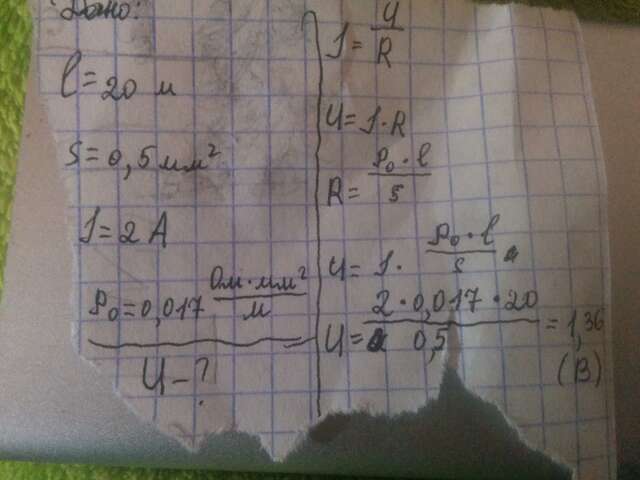 Дано:
l = 20 м
S = 0,5 мм²
I = 2 A
ρ₀ = 0,017 Ом·мм²/м
U – ?
I = U/R
U = I·R
R = ρ₀·l/s
U = I · ρ₀·l/s
U = 2·0,017·20/0,5 = 1,36
(В)